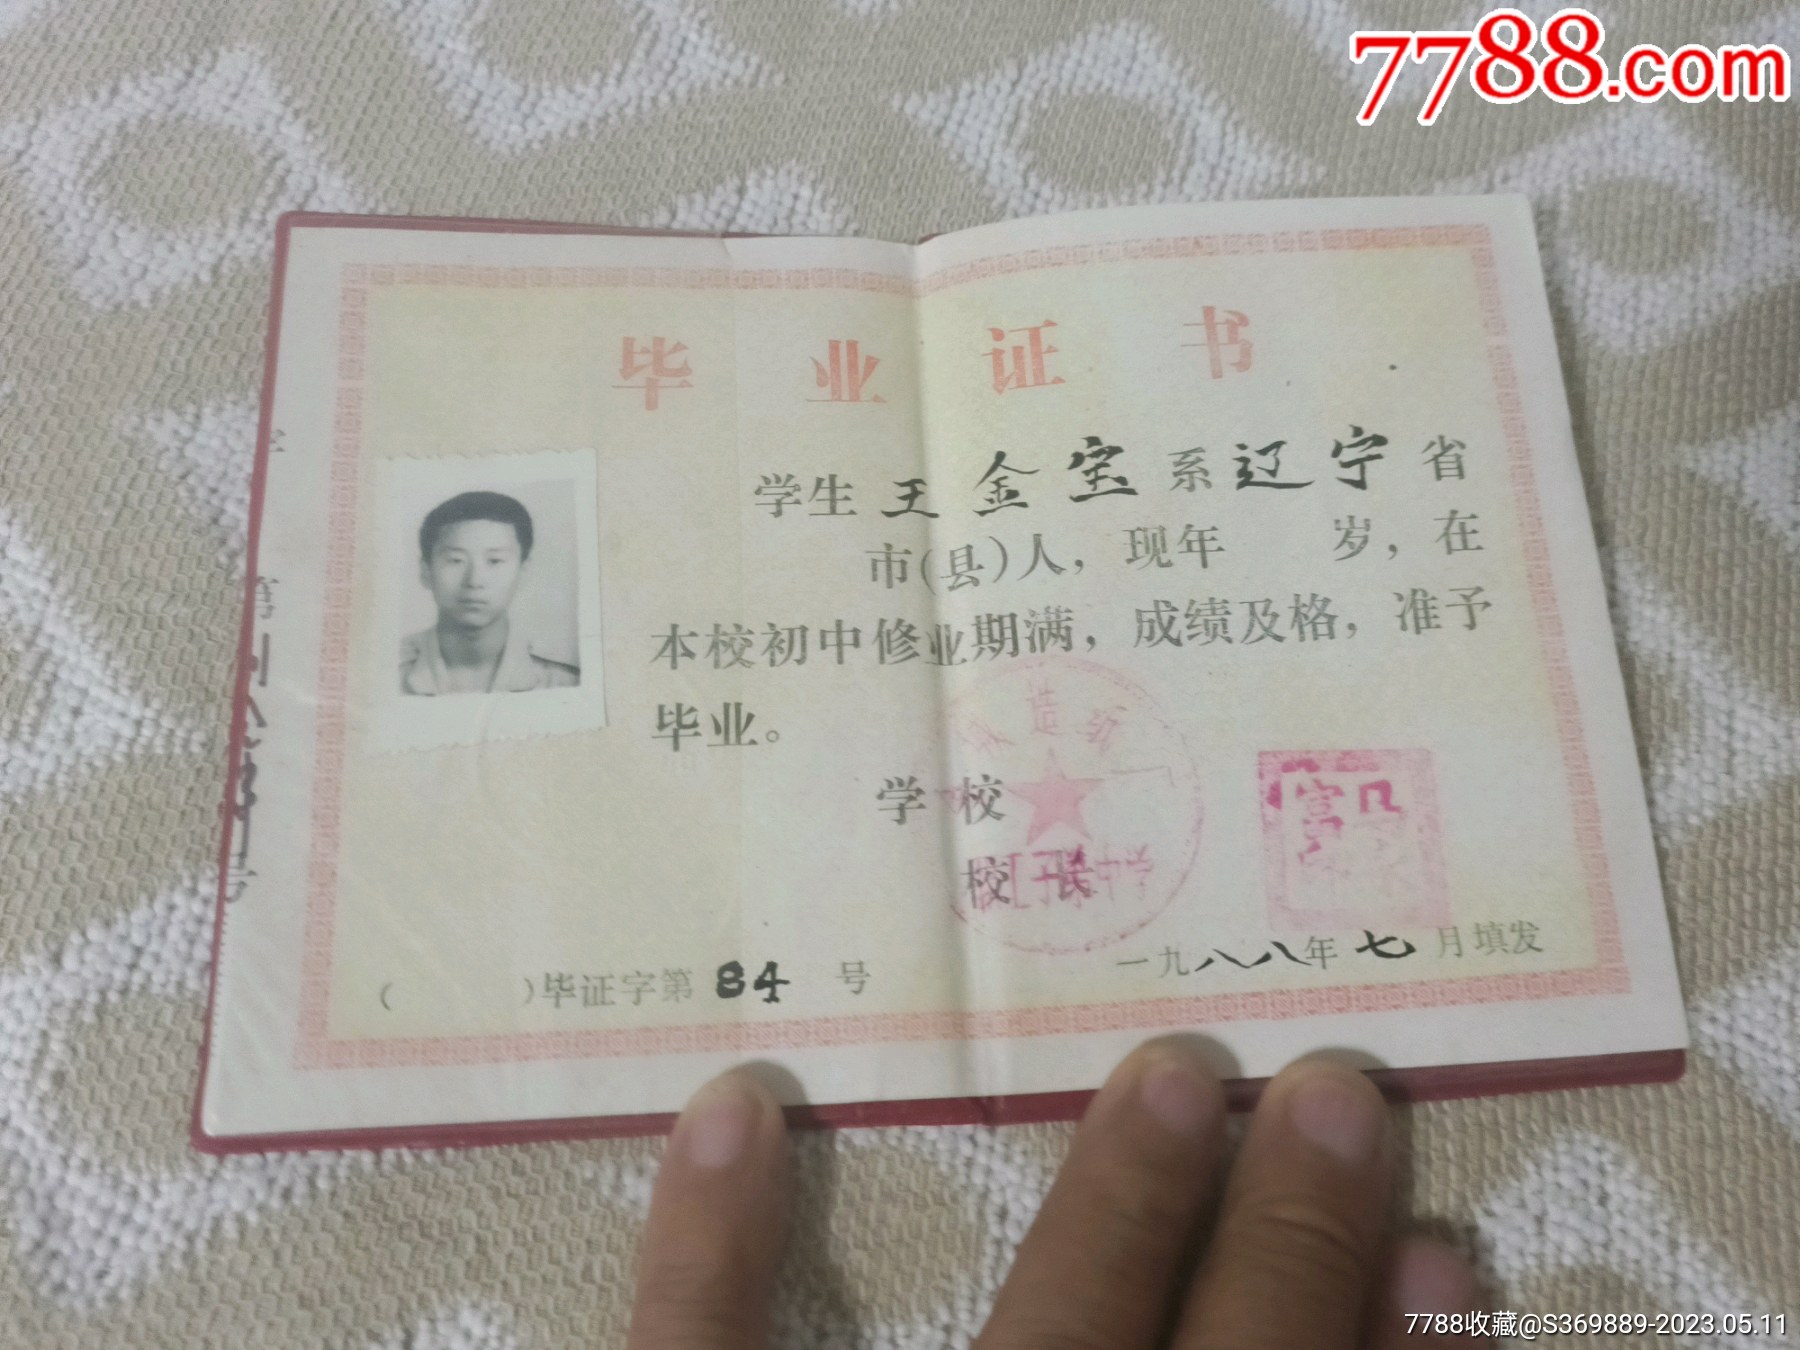 7788.com
毕业证书
学生 王金宝 系 辽宁 省
市(县)人，现年 岁，在
本校初中修业期满，成绩及格，准予
毕业。
学校
校长
中学
( )毕证字第 84 号
一九八八年七月填发
第
号
7788收藏@S369889-2023.05.11